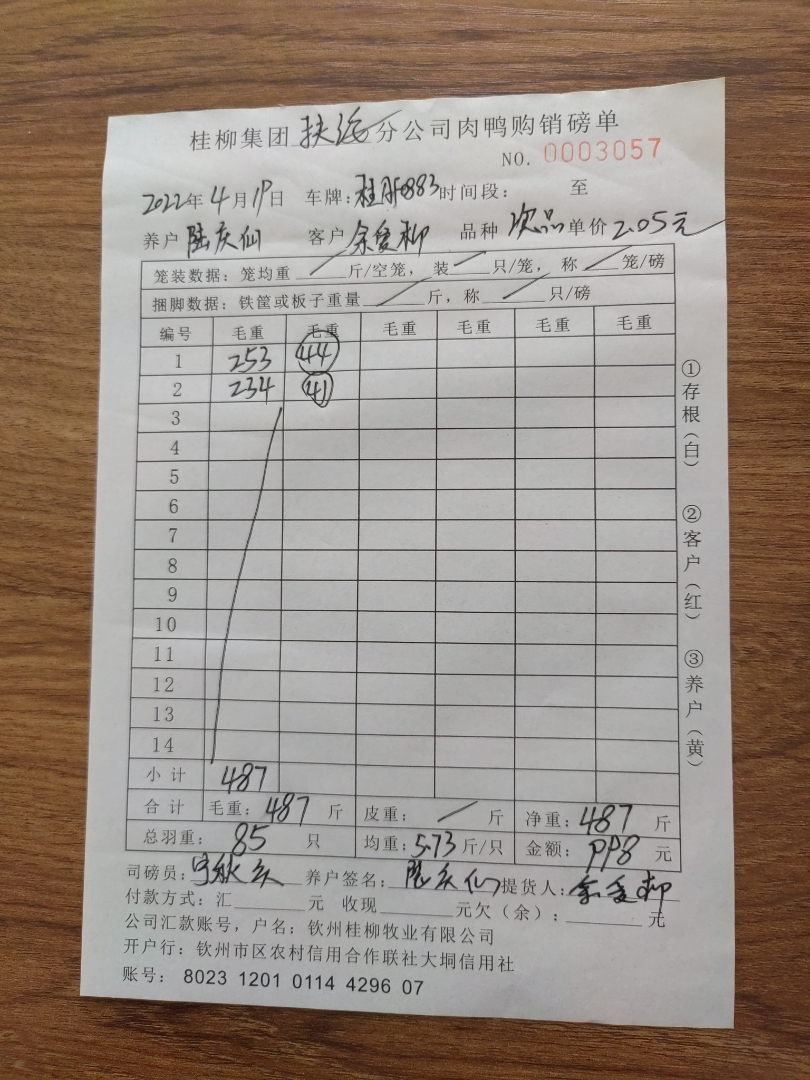 桂柳集团 扶绥 分公司肉鸭购销磅单
NO. 0003057
2022年4月19日 车牌: 时间段: 至
养户 陆庆仙 客户 余爱柳 品种 次品 单价 2.05元
笼装数据: 笼均重 / 斤/空笼, 装 / 只/笼, 称 / 笼/磅
捆脚数据: 铁筐或板子重量 / 斤, 称 / 只/磅
编号 毛重 毛重 毛重 毛重 毛重 毛重
1 253 44
2 234 41
3
4
5
6
7
8
9
10
11
12
13
14
小计 487
合计 毛重: 487 斤 皮重: / 斤 净重: 487 斤
总羽重: 85 只 均重: 5.73 斤/只 金额: 998 元
司磅员: 养户签名: 陆庆仙 提货人: 余爱柳
付款方式: 汇 元 收现 元欠(余): 元
公司汇款账号, 户名: 钦州桂柳牧业有限公司
开户行: 钦州市区农村信用合作联社大垌信用社
账号: 8023 1201 0114 4296 07
①存根(白)
②客户(红)
③养户(黄)